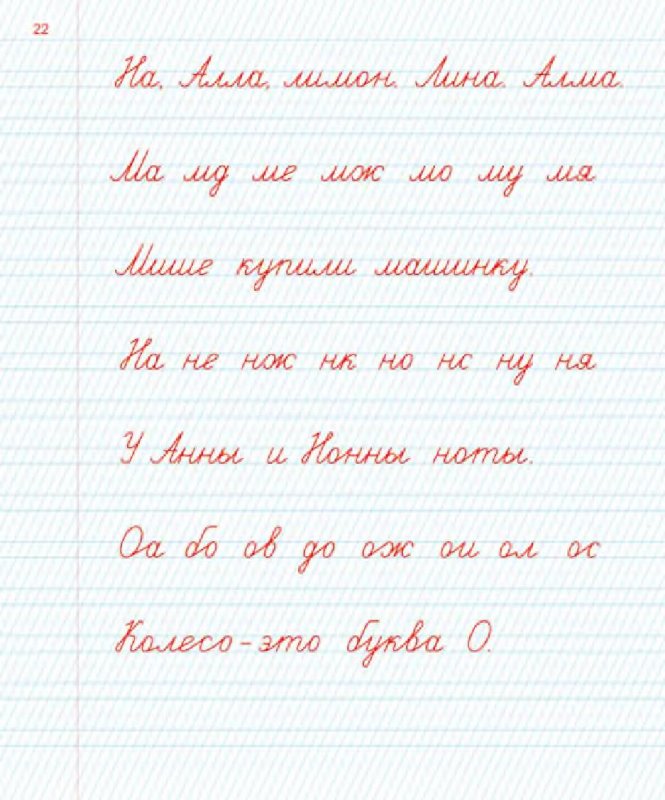 22
На, Алла, лимон. Лина. Алма.
Ма мд ме мж мо му мя
Мише купили машинку.
На не нж нк но нс ну ня
У Анны и Нонны ноты.
Оа бо ов до ож ои ол ос
Колесо - это буква О.